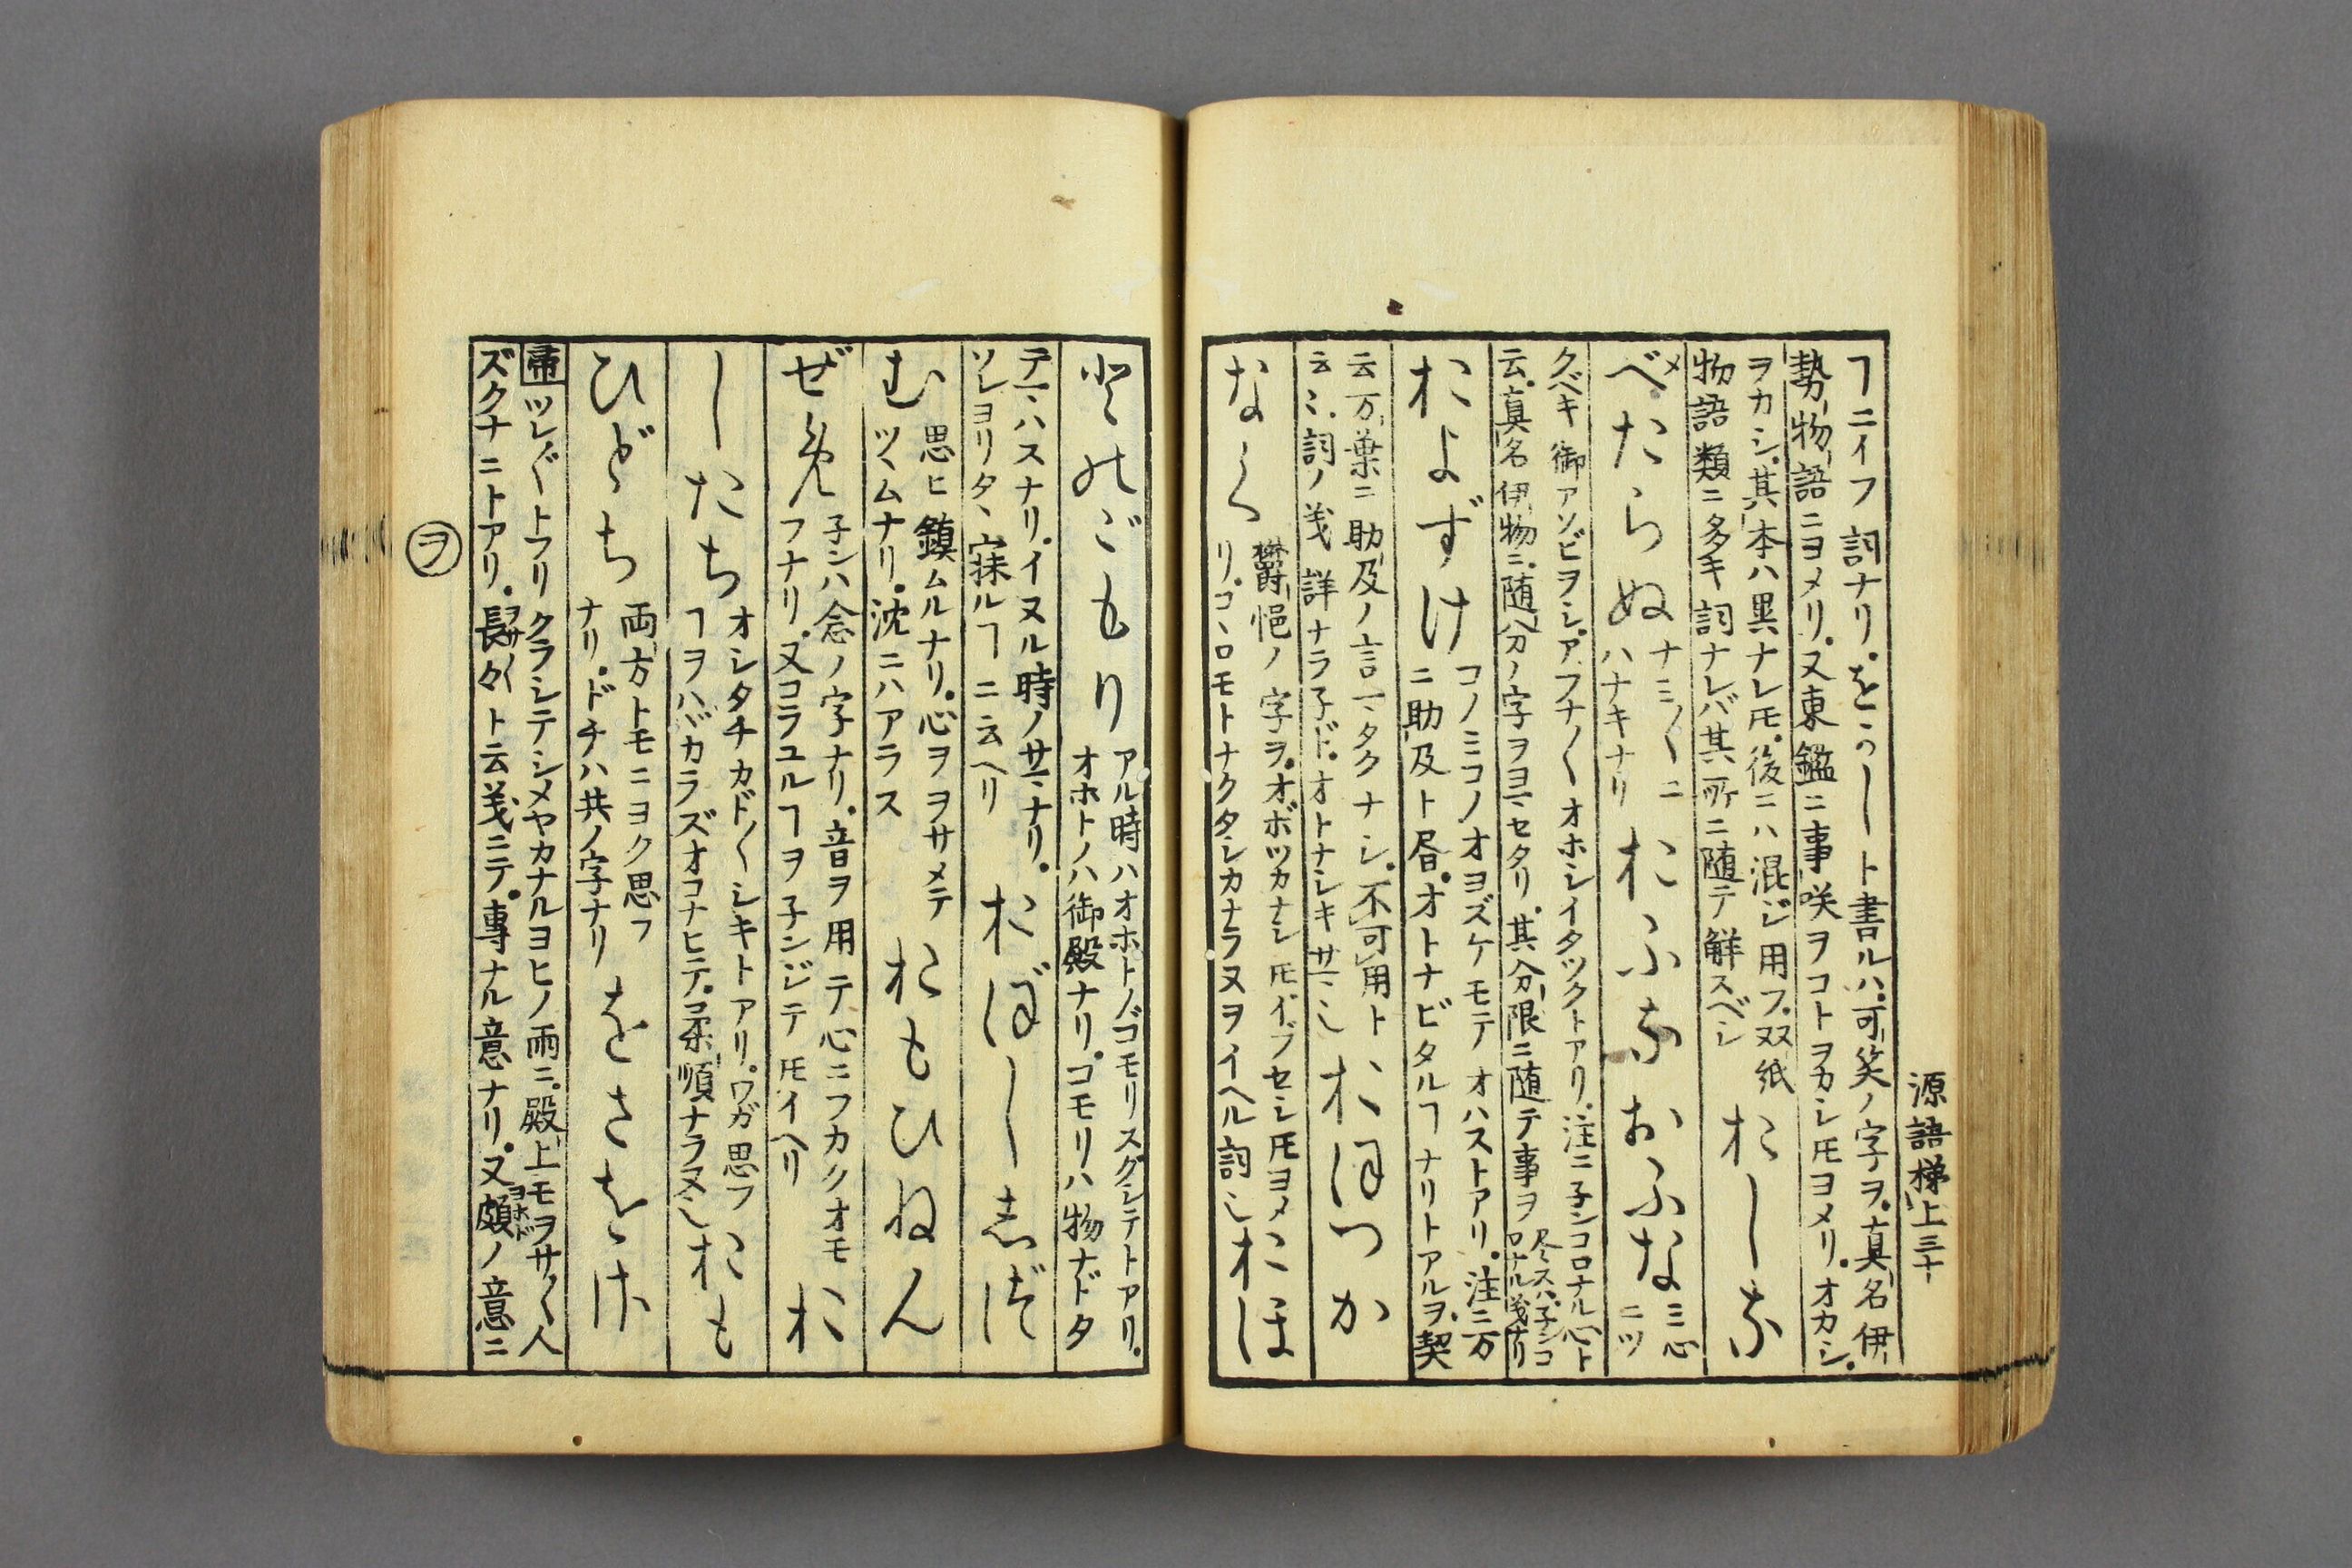 源語梯上三十
ヿニイフ詞ナリ。をかしト書ルハ。可笑ノ字ヲ。真名伊
勢物語ニヨメリ。又東鑑ニ事咲ヲコトヲカシ𪜈ヨメリ。オカシ。
ヲカシ。其本ハ異ナレ𪜈。後ニハ混ジ用フ。双紙
物語類ニ多キ詞ナレバ其所ニ随テ解スベシ
おしな
べたらぬ
メ
ナミ〱ニ
ハナキナリ
おふなおふな
ミ心
ニツ
クベキ御アソビヲシ。アフナ〱オホシイタツクトアリ。注ニ子ンコロナル心ト
云。真名伊物ニ。随分ノ字ヲヨマセタリ。其分限ニ随テ事ヲ
尽スハ。子ンコ
ロナル義ナリ
およずけ
コノミコノオヨズケモテオハストアリ。注ニ万
ニ助及ト㞐。オトナビタルヿナリトアルヲ。契
云万葉ニ助及ノ言マタクナシ。不可用ト
云々。詞ノ義詳ナラ子ド。オトナシキサマ也
おぼつか
なく
欝悒ノ字ヲ。オボツカナシ𪜈イブセシ𪜈ヨメ
リ。コヽロモトナクタシカナラヌヲイヘル詞也
おほ
とのごもり
アル時ハオホトノゴモリスグシテトアリ。
オホトノハ御殿ナリ。コモリハ物ナドタ
テマハスナリ。イヌル時ノサマナリ。
ソレヨリタヽ寐ルヿニ云ヘリ
おぼししづ
む
思ヒ鎮ムルナリ。心ヲヲサメテ
ツヽムナリ。沈ニハアラス
おもひねん
ぜ
子ンハ念ノ字ナリ。音ヲ用テ心ニフカクオモ
フナリ。又コラユルヿヲ子ンジテ𪜈イヘリ
お
したち
オシタチカド〱シキトアリ。ワガ思フ
ヿヲハバカラズオコナヒテ。柔順ナラヌ也
おも
ひどち
両方トモニヨク思フ
ナリ。ドチハ共ノ字ナリ
をさをさ
帚ツレ〲トフリクラシテシメヤカナルヨヒノ雨ニ。殿上モヲサ〱人
ズクナニトアリ。長々ト云義ニテ。専ナル意ナリ。又頗ノ意ニ
ヲサ〱
ヨホド
ヲ